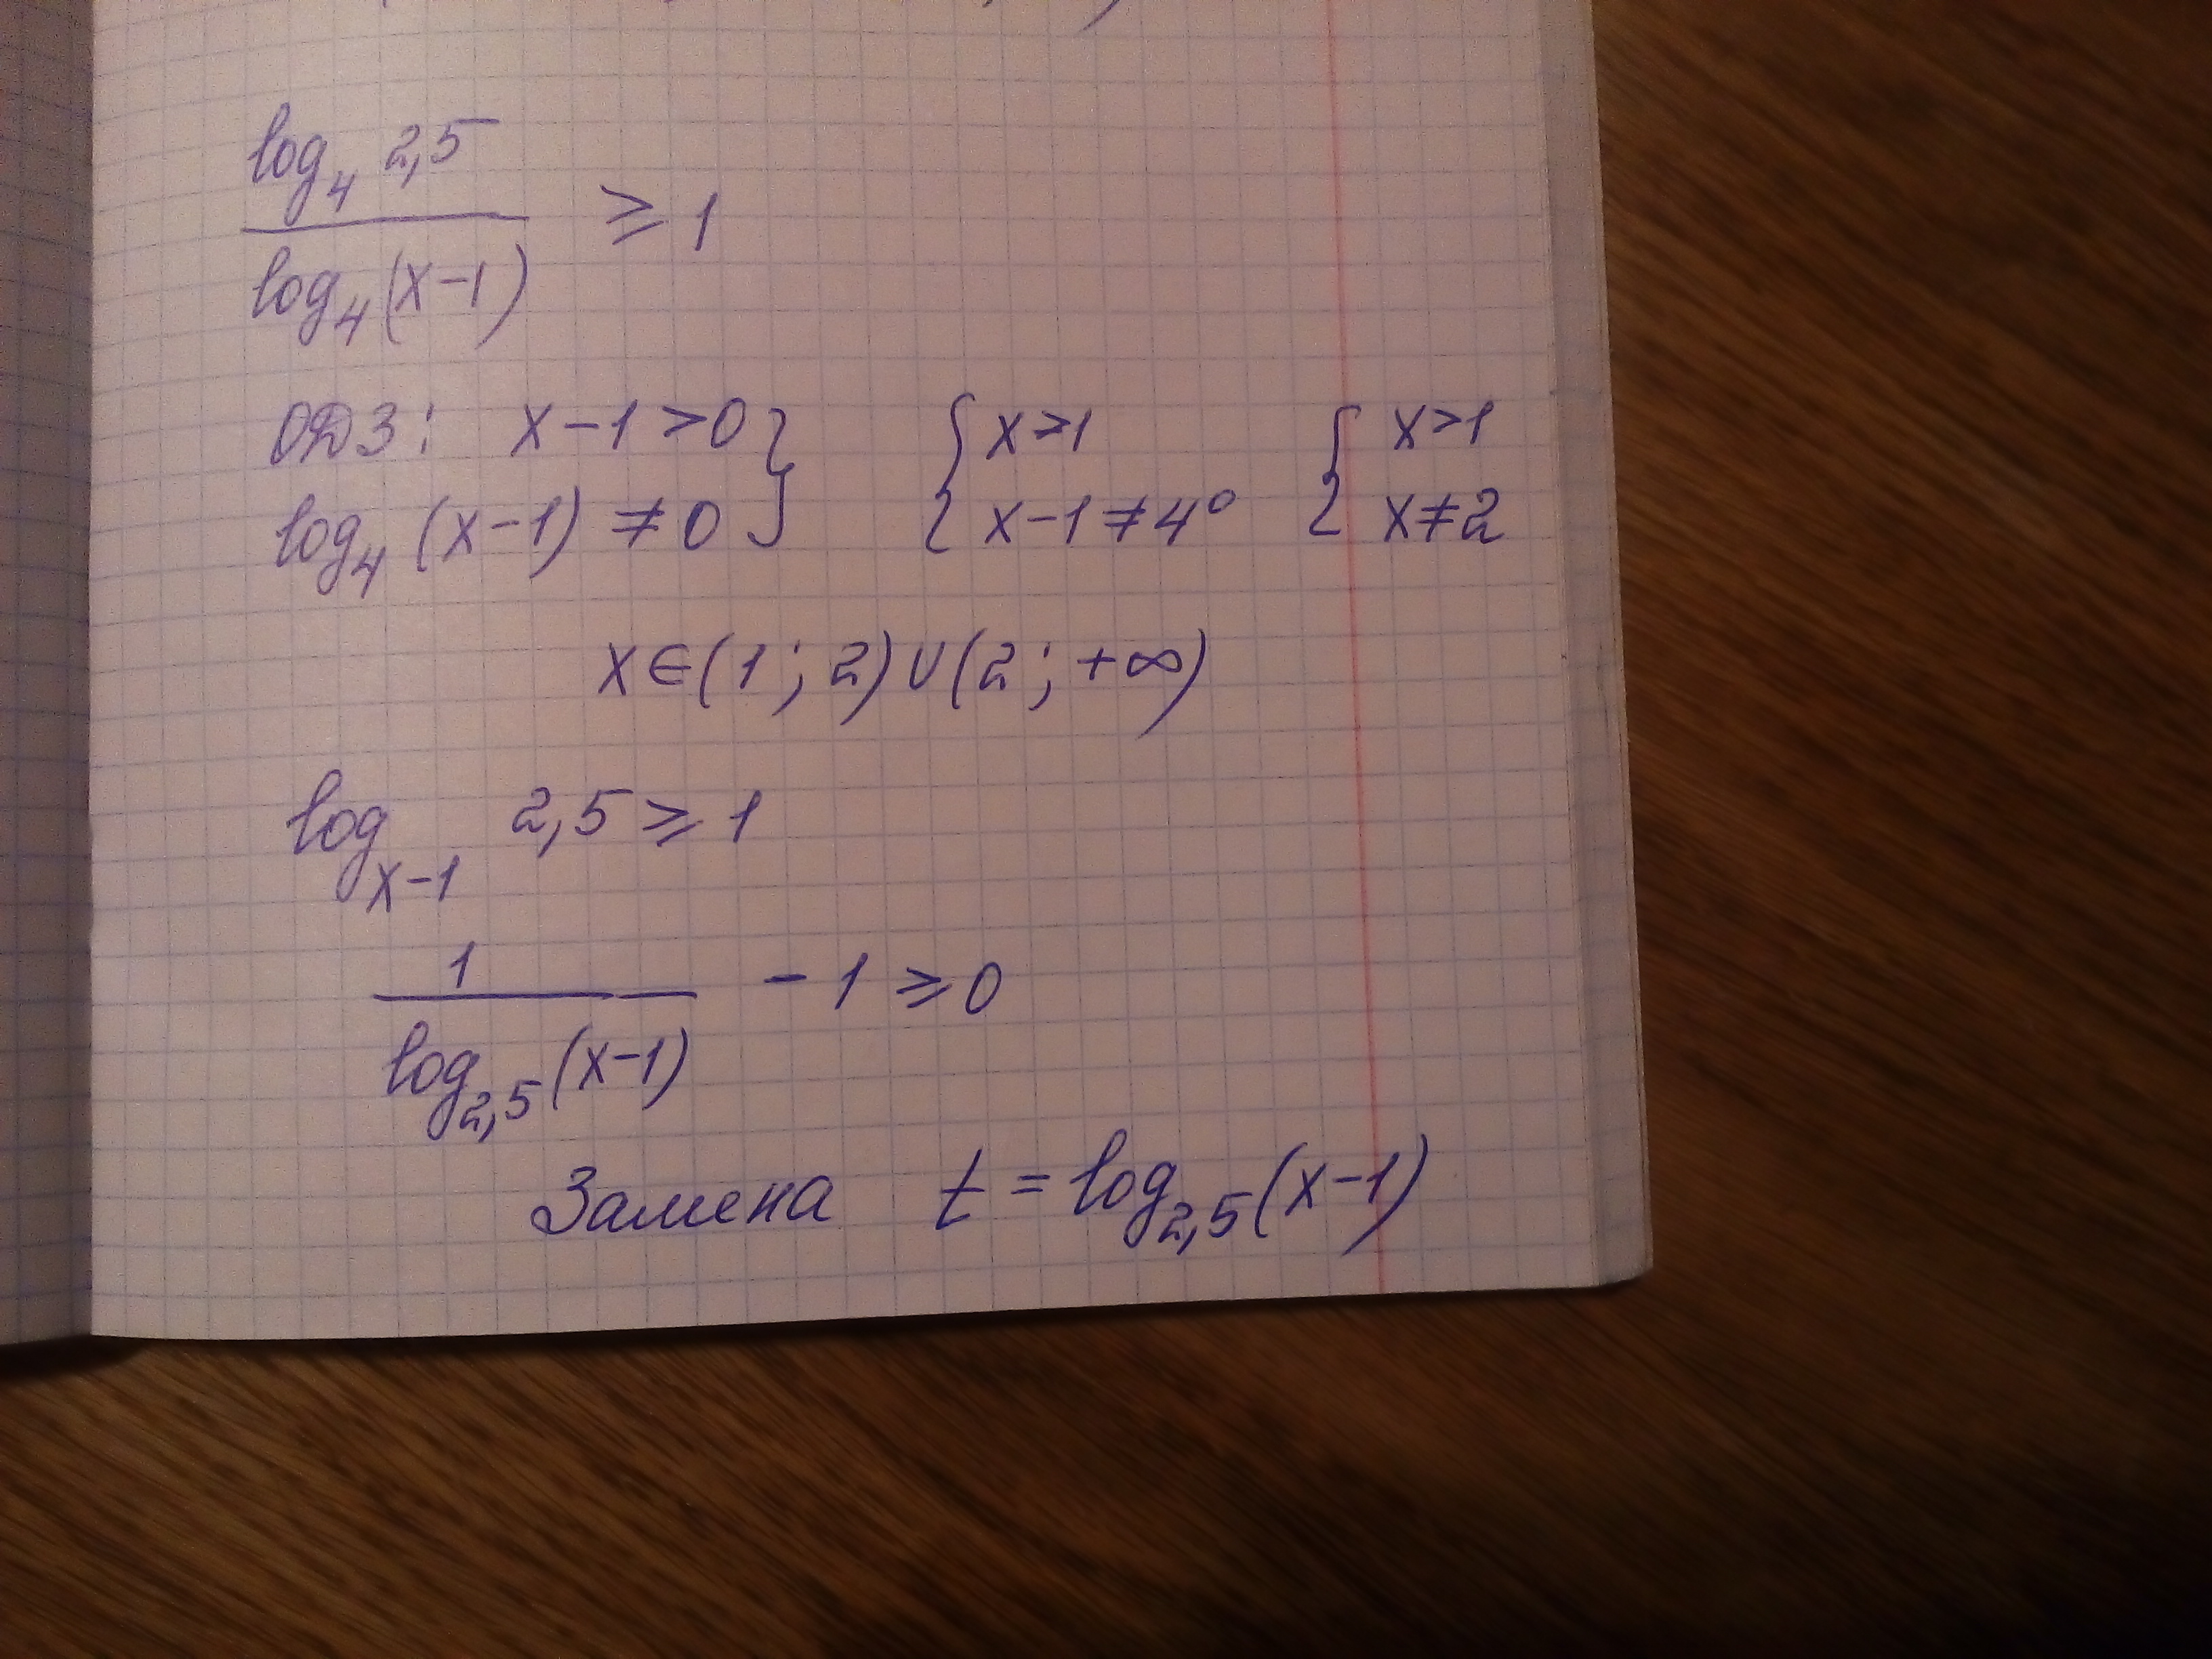 log₄ 2,5
───── ≥ 1
log₄(x-1)
ОДЗ: x-1>0 } { x>1 { x>1
log₄(x-1)≠0 } { x-1≠4⁰ { x≠2
x∈(1;2)∪(2;+∞)
logₓ₋₁ 2,5 ≥ 1
1
───── - 1 ≥ 0
log₂,₅(x-1)
Замена t = log₂,₅(x-1)